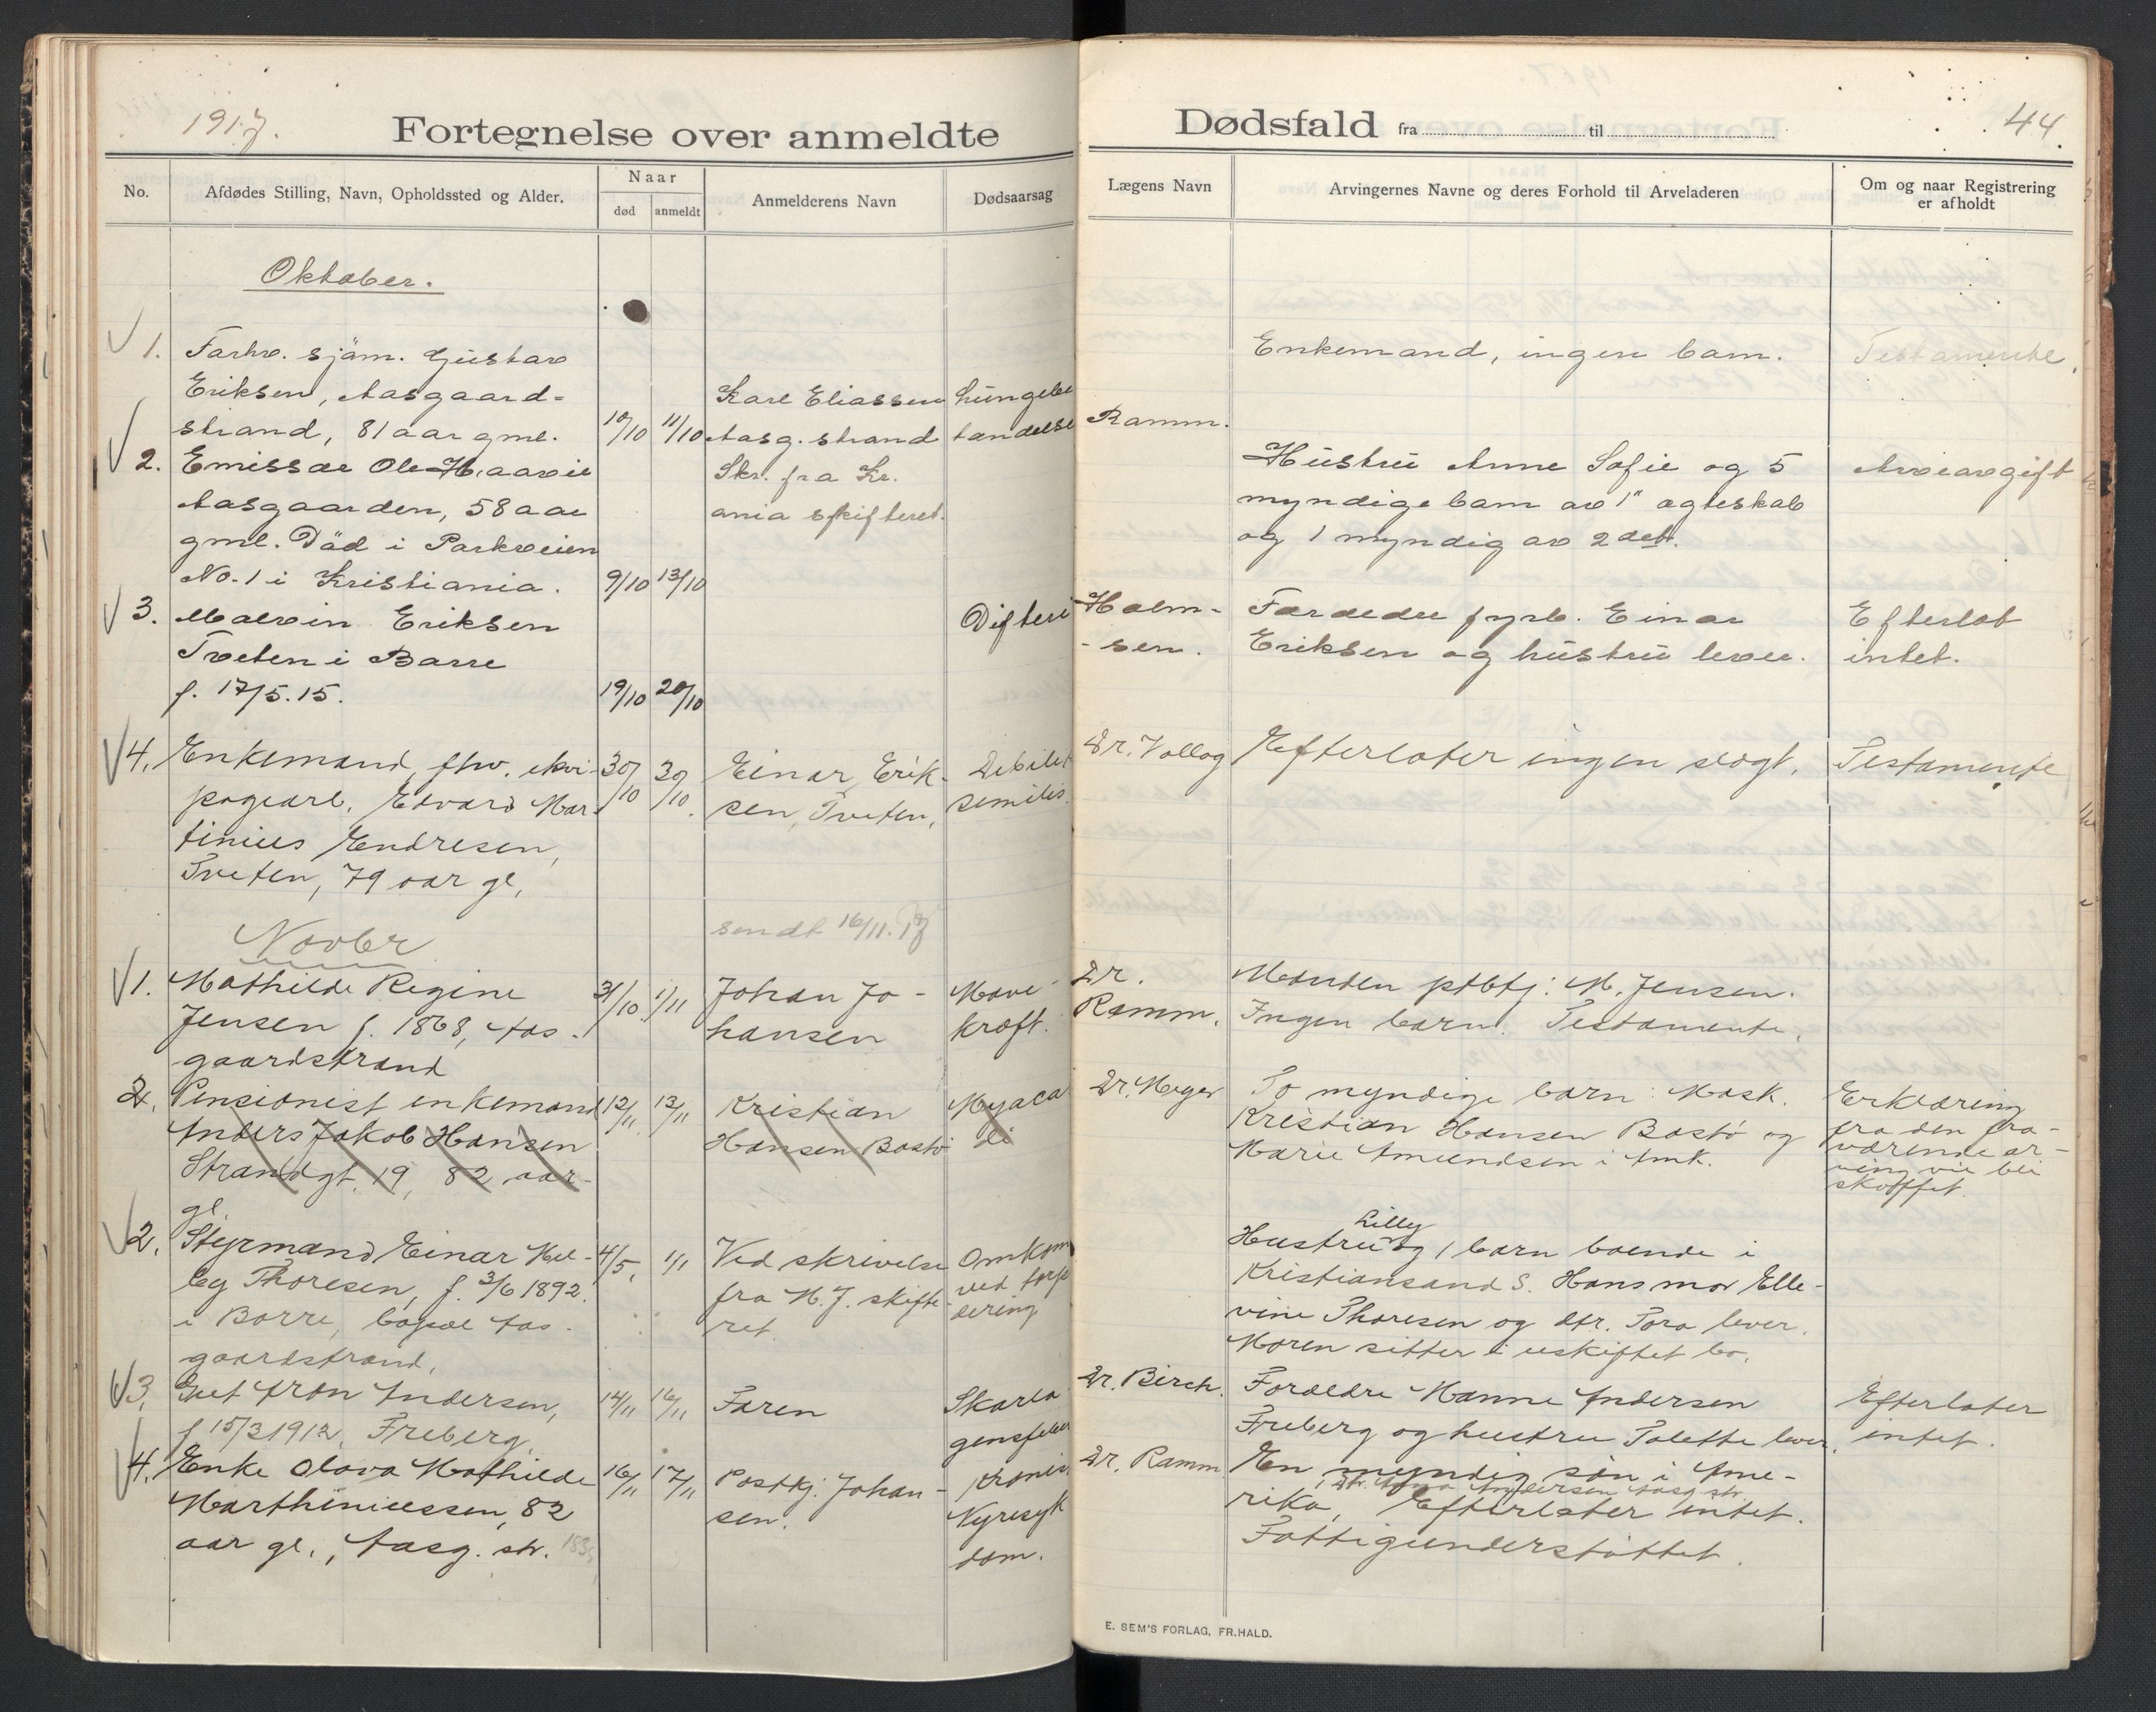 1917.
Fortegnelse over anmeldte
No.
Afdødes Stilling, Navn, Opholdssted og Alder.
Naar
død
anmeldt
Anmelderens Navn
Dødsaarsag
Oktober.
1. Farhv. sjøm. Gustav
Eriksen, Aasgaard-
strand, 81 aar gml.
10/10 11/10
Karl Eliassen
Aasg. strand
Lungebe
tændelse
2. Emissær Ole Haavie
Aasgaarden, 58 aar
gml. Død i Parkveien
No. 1 i Kristiania.
9/10 13/10
Skr. fra Kr.
ania skifteret.
3. Malvin Eriksen
Tveten i Borre
f. 17/5.15.
19/10 20/10
Difteri
4. Enkemand, fhv. ekvi-
pagearb. Edvard Mar-
tinius Endresen,
Tveten, 79 aar gl,
30/10 30/10.
Einar Erik-
sen, Tveten,
Debilit
senilis.
sendt 16/11.17
Novbr
1. Mathilde Regine
Jensen f. 1868, Aas-
gaardstrand
31/10 1/11
Johan Jo-
hansen
Mave-
kræft.
2. Pensionist enkemand
Anders Jakob Hansen
Strandgt. 19, 82 aar
gl.
12/11 13/11
Kristian
Hansen Bastø
Myoca
di
2. Styrmand Einar Mel-
by Thoresen, f. 3/6 1892.
i Borre, bopæl Aas-
gaardstrand,
4/5, 1/1
Ved skrivelse
fra N. J. skifte-
ret
Omkom
ved torp
dering
3. Gut Aron Andersen,
f 15/3 1912, Freberg,
14/11 16/11
Faren
Skarla
gensfeber
4. Enke Olava Mathilde
Marthiniussen, 82
aar gl., Aasg. str. 1835
16/11 17/11
Postkj. Johan-
sen.
Kronis
Nyresyk
dom.
Dødsfald fra til
44.
Lægens Navn
Arvingernes Navne og deres Forhold til Arveladeren
Om og naar Registrering
er afholdt
Ramm.
Enkemand, ingen barn.
Testamente.
Hustru Anne Sofie og 5
myndige barn av 1ste ægteskab
og 1 myndig av 2det.
Arveavgift
Holm-
-sen.
Forældre fyrb. Einar
Eriksen og hustru lever.
Efterlot
intet.
Dr. Vollog
Efterlater ingen slægt.
Testamente
Dr.
Ramm.
Manden postbtj: M. Jensen.
Ingen barn. Testamente.
Dr. Meyer
To myndige barn: Mask.
Kristian Hansen Bastø og
Marie Amundsen i Amk.
Erklæring
fra den fra-
værende ar-
ving vil bli
skaffet.
Lilly
Hustru og 1 barn boende i
Kristiansand S. Hans mor Elle-
vine Thoresen og dtr. Tora lever.
Moren sitter i uskiftet bo.
Dr. Birch.
Forældre Hanne Andersen
Freberg og hustru Tolette lever.
Efterlater
intet.
Dr. Ramm
En myndig søn i Ame-
Andersen Aasg. str.
rika, Efterlater intet.
Fattigunderstøttet.
E. SEM'S FORLAG, FR.HALD.